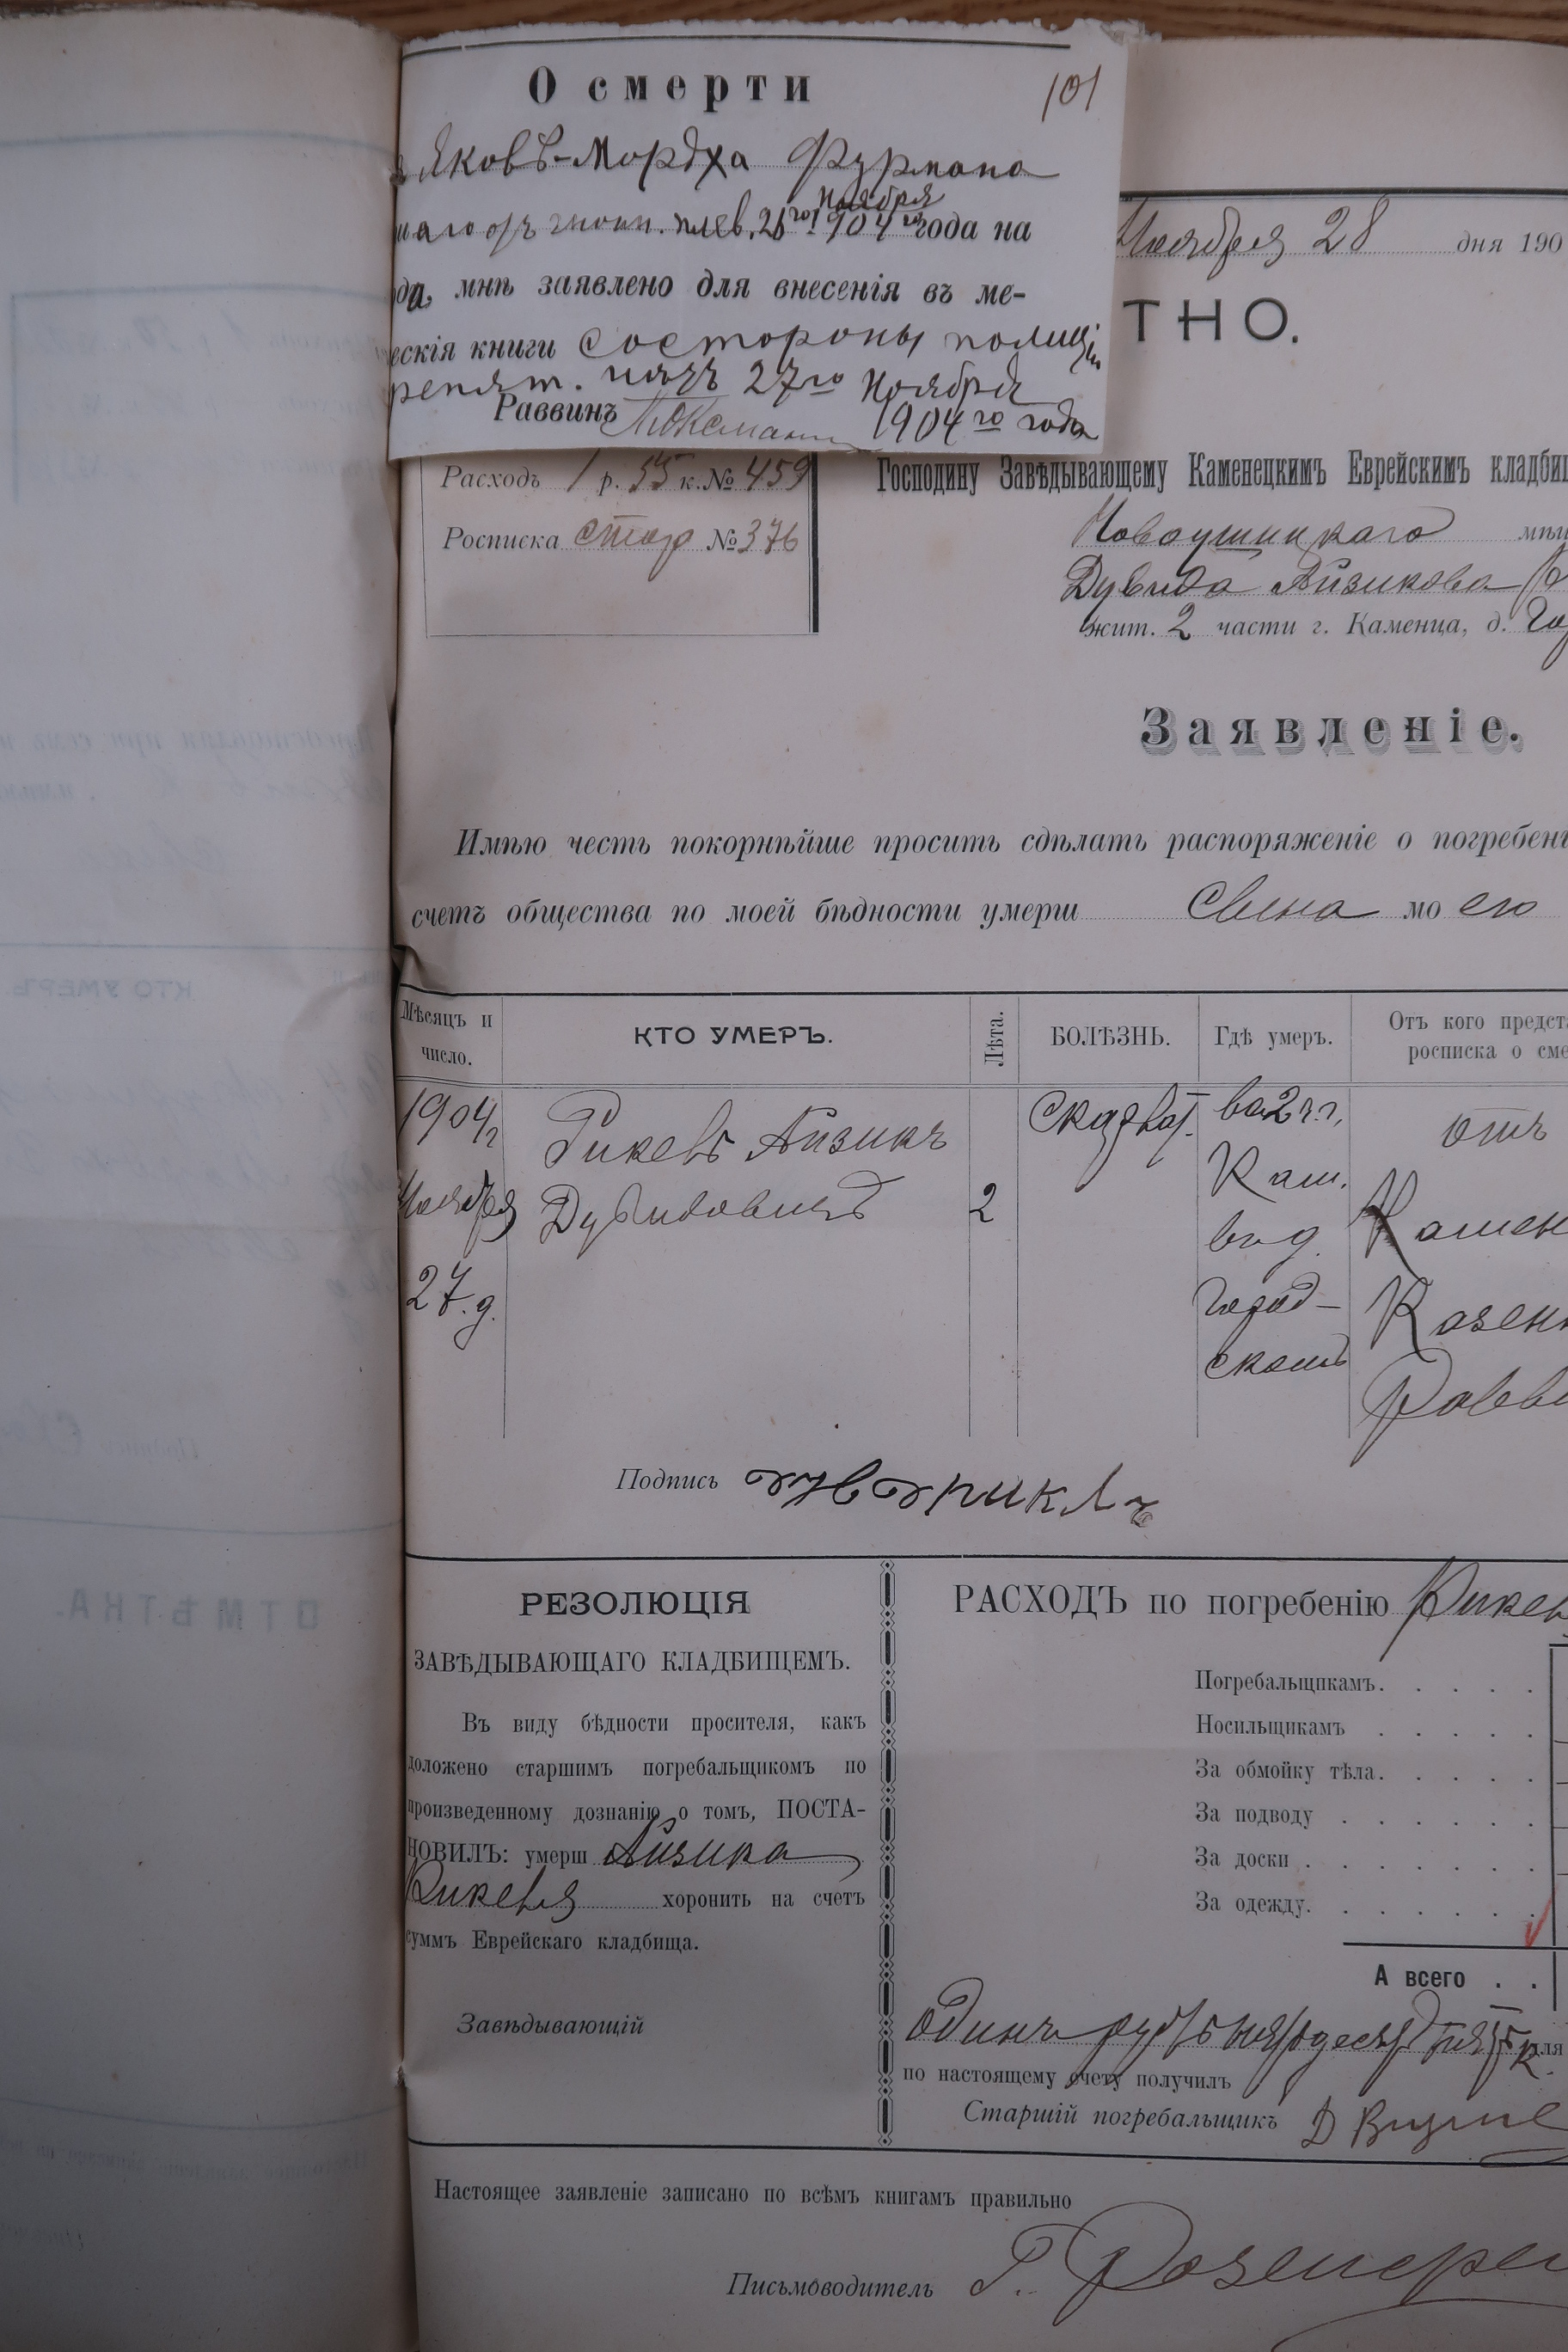 О смерти
101
Яковъ-Мордха Фурмана
Ноября
плев. 26го 1904 года на
да, мнѣ заявлено для внесенія въ ме-
ескія книги со стороны полиціи
27го Ноября
Раввинъ 1904го года
Ноября 28 дня 190
ТНО.
Расходъ 1 р. 55 к. № 459
Росписка стар № 376
Господину Завѣдывающему Каменецкимъ Еврейскимъ кладби
Новоушицкаго мѣщ
Дувида Айзикова
жит. 2 части г. Каменца, д. Го
Заявленіе.
Имѣю честь покорнѣйше просить сдѣлать распоряженіе о погребен
счетъ общества по моей бѣдности умерш сына мо его
Мѣсяцъ и число.
КТО УМЕРЪ.
Лѣта.
БОЛѢЗНЬ.
Гдѣ умеръ.
Отъ кого предст
росписка о сме
1904 г Рикель Айзикъ во 2 ч. г. отъ
Кам.
Ноября Дувидовичъ 2 въ д. Камен
27 д. Город- Казен
скомъ Равви
Подпись
РЕЗОЛЮЦІЯ
ЗАВѢДЫВАЮЩАГО КЛАДБИЩЕМЪ.
Въ виду бѣдности просителя, какъ
доложено старшимъ погребальщикомъ по
произведенному дознанію о томъ, ПОСТА-
НОВИЛЪ: умерш Айзика
Рикеля хоронить на счетъ
суммъ Еврейскаго кладбища.
Завѣдывающій
РАСХОДЪ по погребенію Рикел
Погребальщикамъ. . . . .
Носильщикамъ . . . .
За обмойку тѣла. . . . .
За подводу . . . . . .
За доски . . . . . . .
За одежду. . . . . . .
А всего . .
одинъ рубль пятьдесятъ пять к. для
по настоящему счету получилъ
Старшій погребальщикъ Д
Настоящее заявленіе записано по всѣмъ книгамъ правильно
Письмоводитель Г. Розенгре
КТО УМЕРЪ.
ОТМѢТКА.